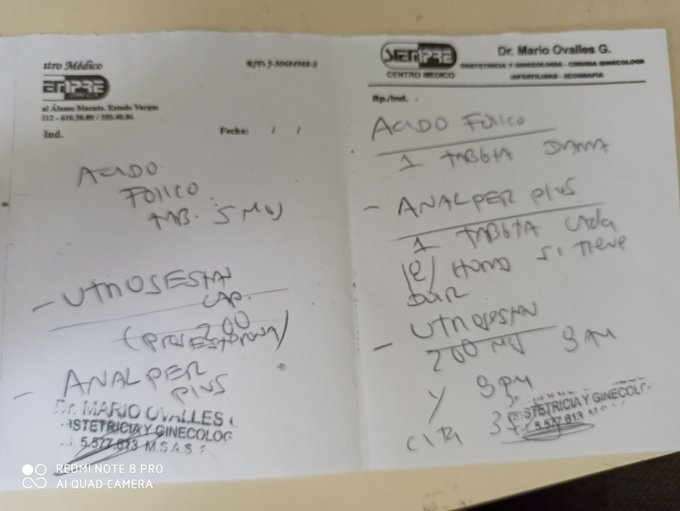 tro Médico
R/F) J-30684988-2
EMPRE
al Álamo Macuto. Estado Vargas
Ind.
Fecha: / /
ACIDO
FOLICO
TAB. 5 MG
- UTROGESTAN
CAP.
200
(PROGESTERONA)
- ANALPER
PLUS
Dr. MARIO OVALLES
OSTETRICIA Y GINECOLOG
5.577.613 M.S.A.S.
SIEMPRE
CENTRO MEDICO
Dr. Mario Ovalles G.
OBSTETRICIA Y GINECOLOGIA - CIRUGIA GINECOLOGI
INFERTILIDAD - ECOGRAFIA
Rp./Ind.
ACIDO FOLICO
1 TABLETA DIARIA
- ANALPER PLUS
1 TABLETA CADA
HORAS SI TIENE
DOLOR
- UTROGESTAN
200 MG 9 AM
Y 9 PM
STETRICIA Y GINECOLO
5.577.613
REDMI NOTE 8 PRO
AI QUAD CAMERA